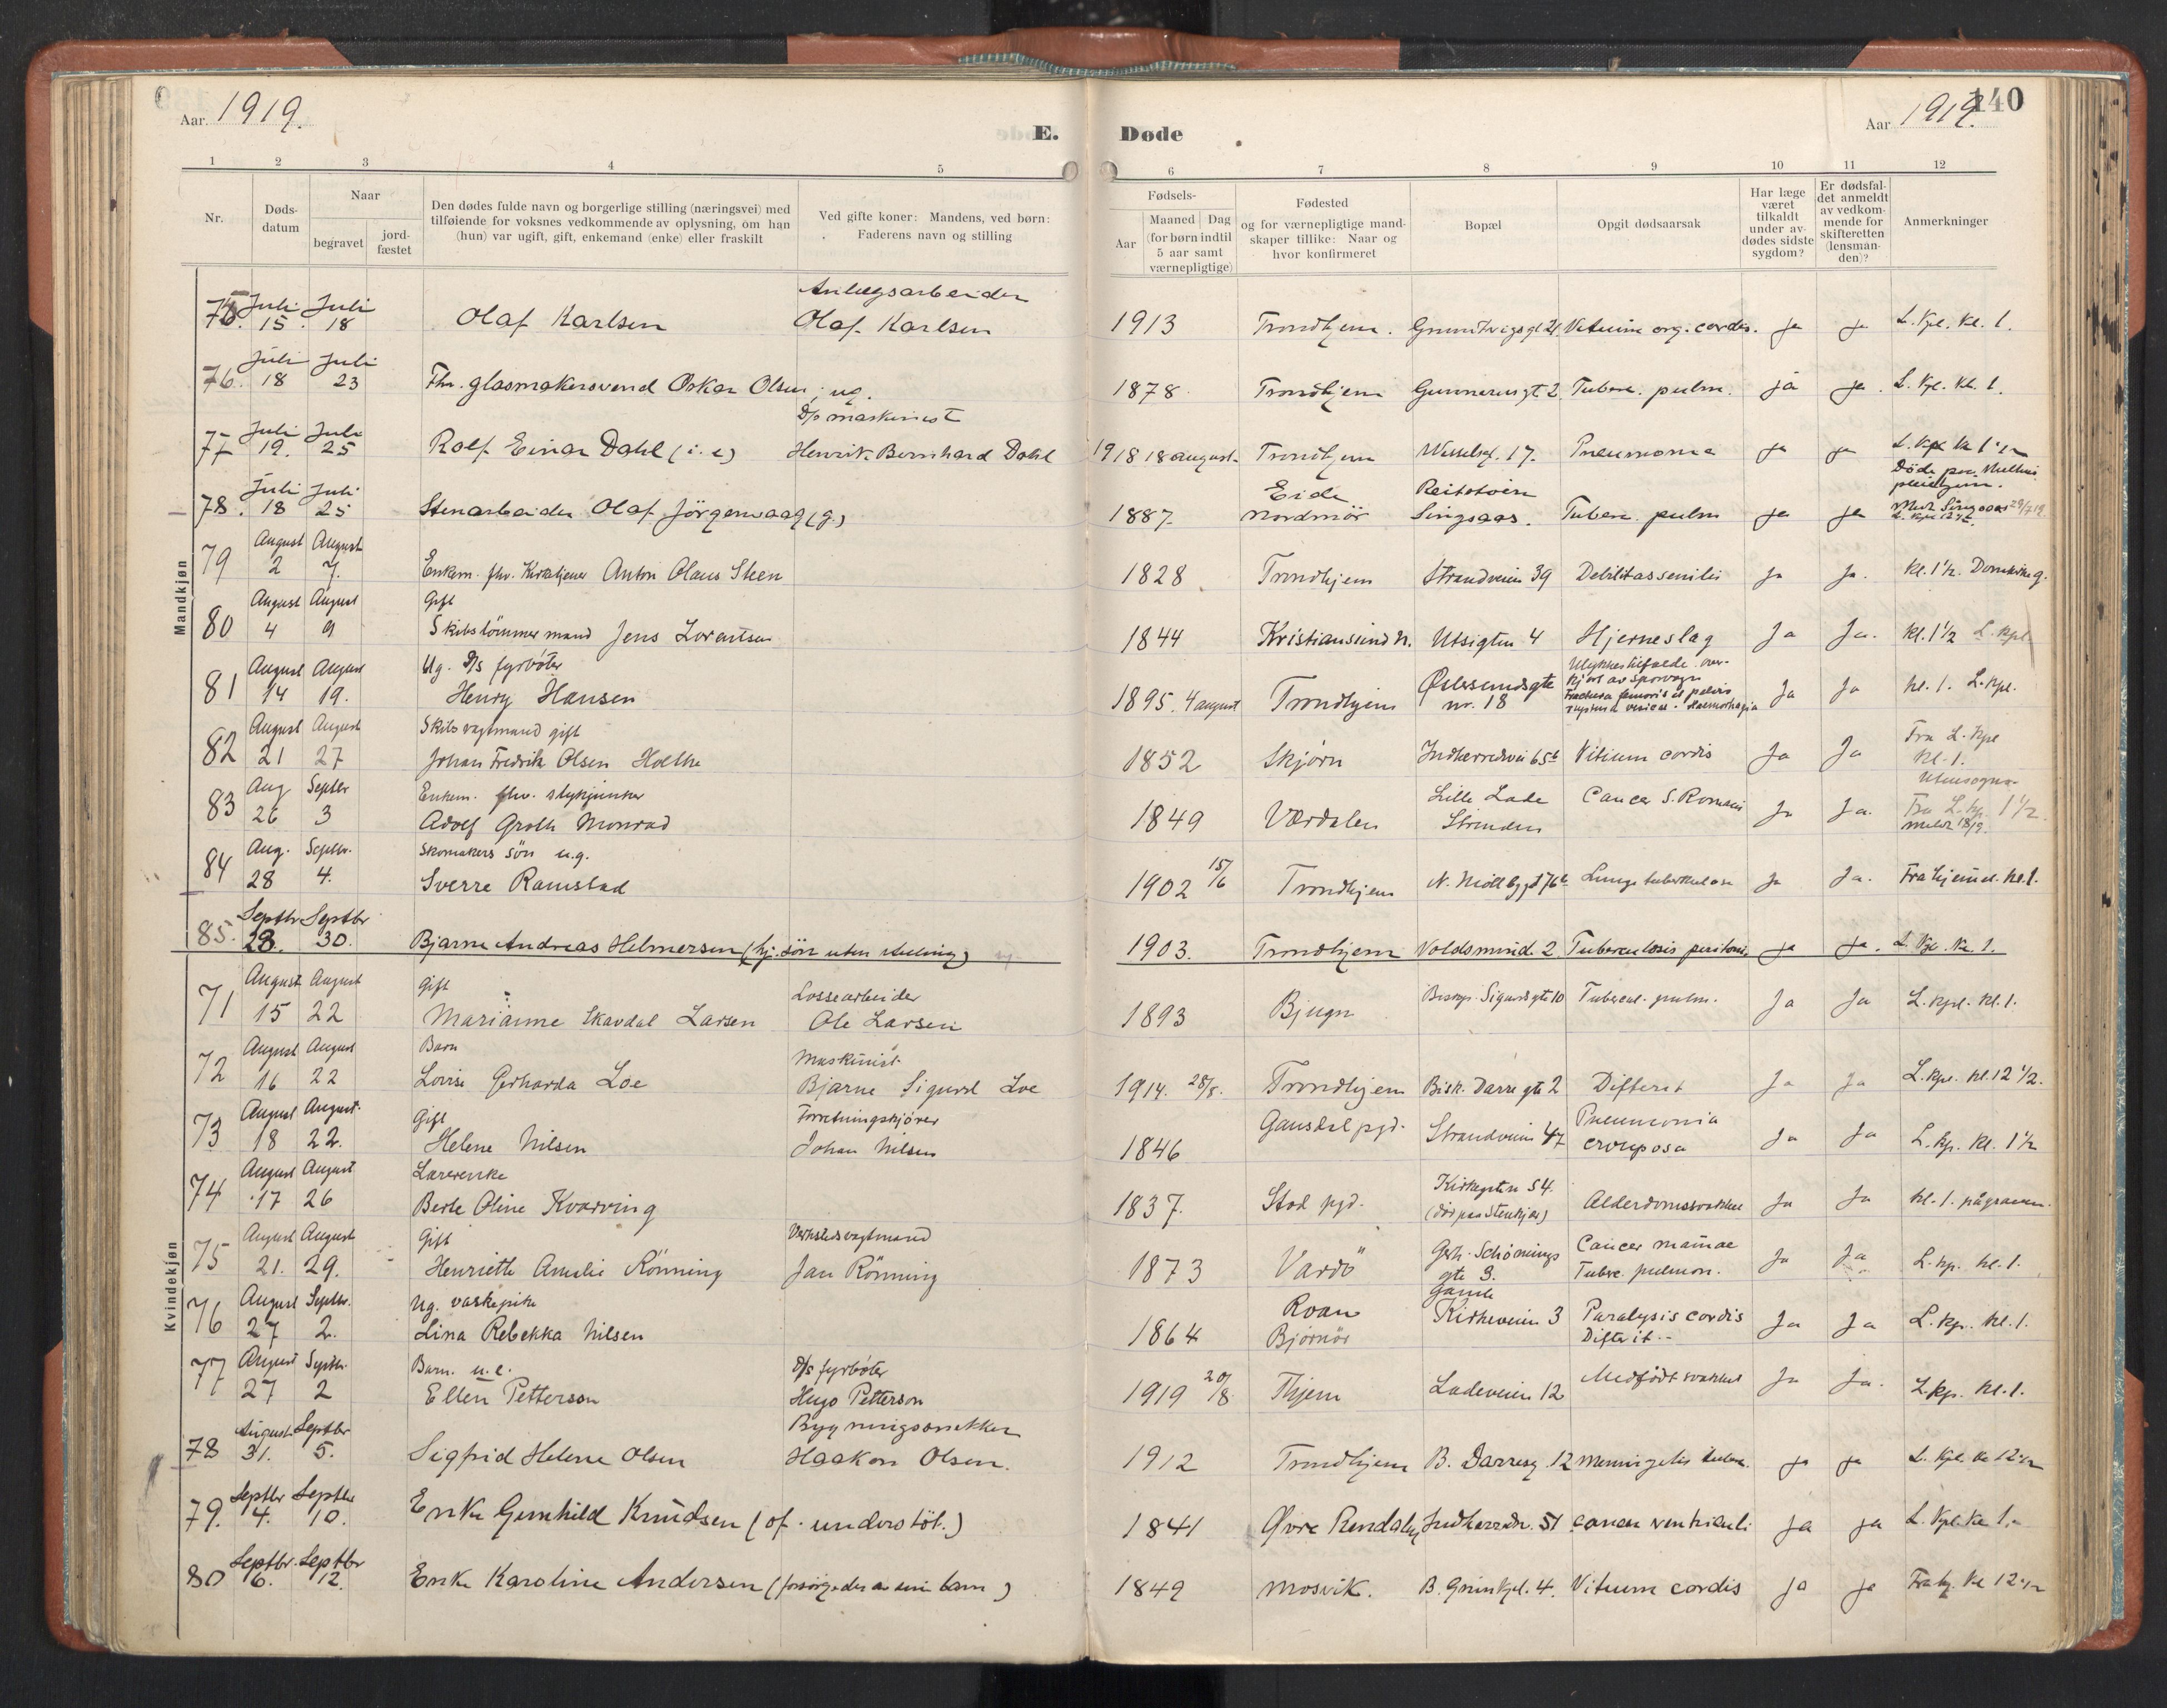 Aar. 1919.
E. Døde
Aar 1919.
140
1 2 3 4 5 6 7 8 9 10 11 12
Nr.
Døds-
datum
Naar
begravet
jord-
fæstet
Den dødes fulde navn og borgerlige stilling (næringsvei) med
tilføiende for voksnes vedkommende av oplysning, om han
(hun) var ugift, gift, enkemand (enke) eller fraskilt
Ved gifte koner: Mandens, ved børn:
Faderens navn og stilling
Fødsels-
Aar
Maaned Dag
(for børn indtil
5 aar samt
værnepligtige)
Fødested
og for værnepligtige mand-
skaper tillike: Naar og
hvor konfirmeret
Bopæl
Opgit dødsaarsak
Har læge
været
tilkaldt
under av-
dødes sidste
sygdom?
Er dødsfal-
det anmeldt
av vedkom-
mende for
skifteretten
(lensman-
den)?
Anmerkninger
Mandkjøn
Juli Juli Anlægsarbeider
75. 15. 18 Olaf Karlsen Olaf Karlsen 1913 Trondhjem. Grundtvigsgt 21. Vitium org. cordis. ja ja L. Kpl. Kl. 1.
Juli Juli
76. 18 23 Fhv. glasmakersvend Oskar Olsen; ug. 1878 Trondhjem Gunnerusgt 2. Tuberc. pulm. ja ja. L. Kpl. Kl. 1.
Juli Juli D/s maskinist
77 19. 25 Rolf Einar Dahl (i. e) Henrik Bernhard Dahl 1918 18 august. Trondhjem Wesselsgt. 17. Pneumonia ja ja L. Kpl Kl 1 1/2
Juli Juli Eide Reitstøen Døde paa
78. 18 25 Stenarbeider Olaf Jörgenvaag (g.) 1887. Nordmör Singsaas. Tuberc. pulm ja ja Medt Singsaas
August August
79 2 7. Enkem. fhv. Kirketjener Anton Olaus Steen 1828 Trondhjem Strandveien 39 Debilitas senilis Ja Ja. Kl. 1 1/2. Domkirkeg.
August August Gift
80 4 9 Skibstömmermand Jens Lorentsen 1844 Kristiansund N. Utsigten 4 Hjerneslag Ja Ja. Kl. 1 1/2 L. Kpl.
August August Ug. D/s fyrbøter Ulykkestilfælde. over-
kjørt av sporvogn
81 14 19. Henry Hansen 1895. 4 august Trondhjem Østersundsgte nr. 18 Fractura femoris et pelvis Ja Ja kl. 1. L. Kpl.
ruptura vesicae. Haemorhagia
August August Skibsvagtmand gift Fra L. Kpl
82 21 27 Johan Fredrik Olsen Holthe 1852 Skjørn Indherredsvei 65b Vitium cordis Ja Ja Kl. 1.
Aug Septbr Enkem. fhv. stykjunker Lille Lade Utensogns.
83 26 3 Adolf Groth Monrad 1849 Værdalen Strinden Cancer S. Romani Ja Ja. Fra L. kp. 1 1/2.
meldt 18/9.
Aug. Septbr. Skomakers sön u.g.
84 28 4. Sverre Ramstad 1902 15/6 Trondhjem N. Möllbggt 76b Lungetuberkulose Ja Ja. Fra hjemmet. kl. 1.
Septbr Septbr
85. 23. 30. Bjarne Andreas Helmersen (hj. sön uten stilling) 1903. Trondhjem Voldsmind. 2 Tuberculosis peritoni ja ja. L. Kpl. Kl. 1.
Kvindekjøn
August August Gift Lossearbeider
71 15 22 Marianne Skavdal Larsen Ole Larsen 1893 Bjugn Biskop Sigurdsgte 10 Tubercul. pulm. Ja Ja L. Kpl. Kl. 1.
August August Barn Maskinist
72 16 22 Lovise Gerharda Loe Bjarne Sigurd Loe 1914. 28/8. Trondhjem Bisk. Darre gte 2 Difterit Ja Ja L. Kpl. Kl. 12 1/2.
August August. Gift Forretningskjører
73 18 22. Helene Nilsen Johan Nilsen 1846 Gausdal pgd. Strandveien 47 Pneumonia crouposa Ja Ja L. kp. Kl. 1 1/2
August August Lærerenke Kirkegaten 54.
74 17 26 Berte Oline Kvarving 1837. Stod pgd. (död paa Stenkjær) Alderdomssvakhet Ja Ja Kl. 1. på graven.
August August Gift Verkstedsvagtmand
75 21. 29. Henriette Amalie Rönning Jan Rönning 1873 Vardö Gerh. Schönings gte 3. Cancer mamae Ja Ja L. kp. kl. 1.
Tuberc. pulmon.
August Septbr. Ug. vaskepike Roan Gamle
76 27 2. Lina Rebekka Nilsen 1864 Björnör Kirkeveien 3 Paralysis cordis Ja Ja L. kp. kl. 1.
Difterit.
August Septbr. Barn. u.e. D/s fyrbøter
77 27 2 Ellen Petterson Hugo Petterson 1919 20/8 Thjem Ladeveien 12 Medfödt svakhet Ja Ja. L. kp. kl. 1.
August Septbr Bygningssnekker
78 31. 5. Sigfrid Helene Olsen Haakon Olsen. 1912 Trondhjem B. Darresg. 12 Meningitis tuberc. ja ja L. Kpl. Kl 12 1/2
Septbr Septbr
79. 4. 10. Enke Gunhild Knudsen (of. understöt.) 1841 Øvre Rendalen Indherredsv. 51 cancer ventriculi ja ja L. Kpl. Kl 1.
Septbr. Septbr
80 6. 12. Enke Karoline Andersen (forsörgedes av sine barn) 1849 Mosvik. B. Grimkjel. 4. Vitium cordis ja ja Fra hj. Kl 12 1/2